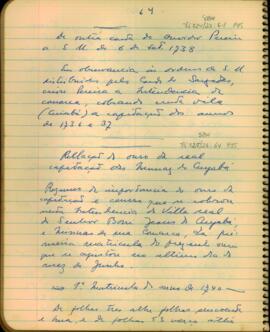 64
De outra carta do ouvidor Pereira
a S. M. de 6 de Set. 1738
Em observancia às ordens de S. M.
distribuidas pelo Conde de Sarzedas,
criou Pereira a Intendencia da
comarca, cobrando nesta vila
(Cuiabá) a capitação dos annos
de 1736 e 37
Rellação do ouro da real
capitação das Minnas do Cuyabá
Resumo da importancia do ouro da
capitação e censo que se cobrou
nesta Intendencia da Villa real
do Senhor Bom Jesus do Cuyabá,
e Minnas de sua Comarca da pri
meira matricula do prezente anno
que se ajustou no ultimo dia do
mez de Junho.
1ª Matricula do anno de 1740
De folhas tres athe folhas sincoenta
e huma, e de folhas 55 verso athe